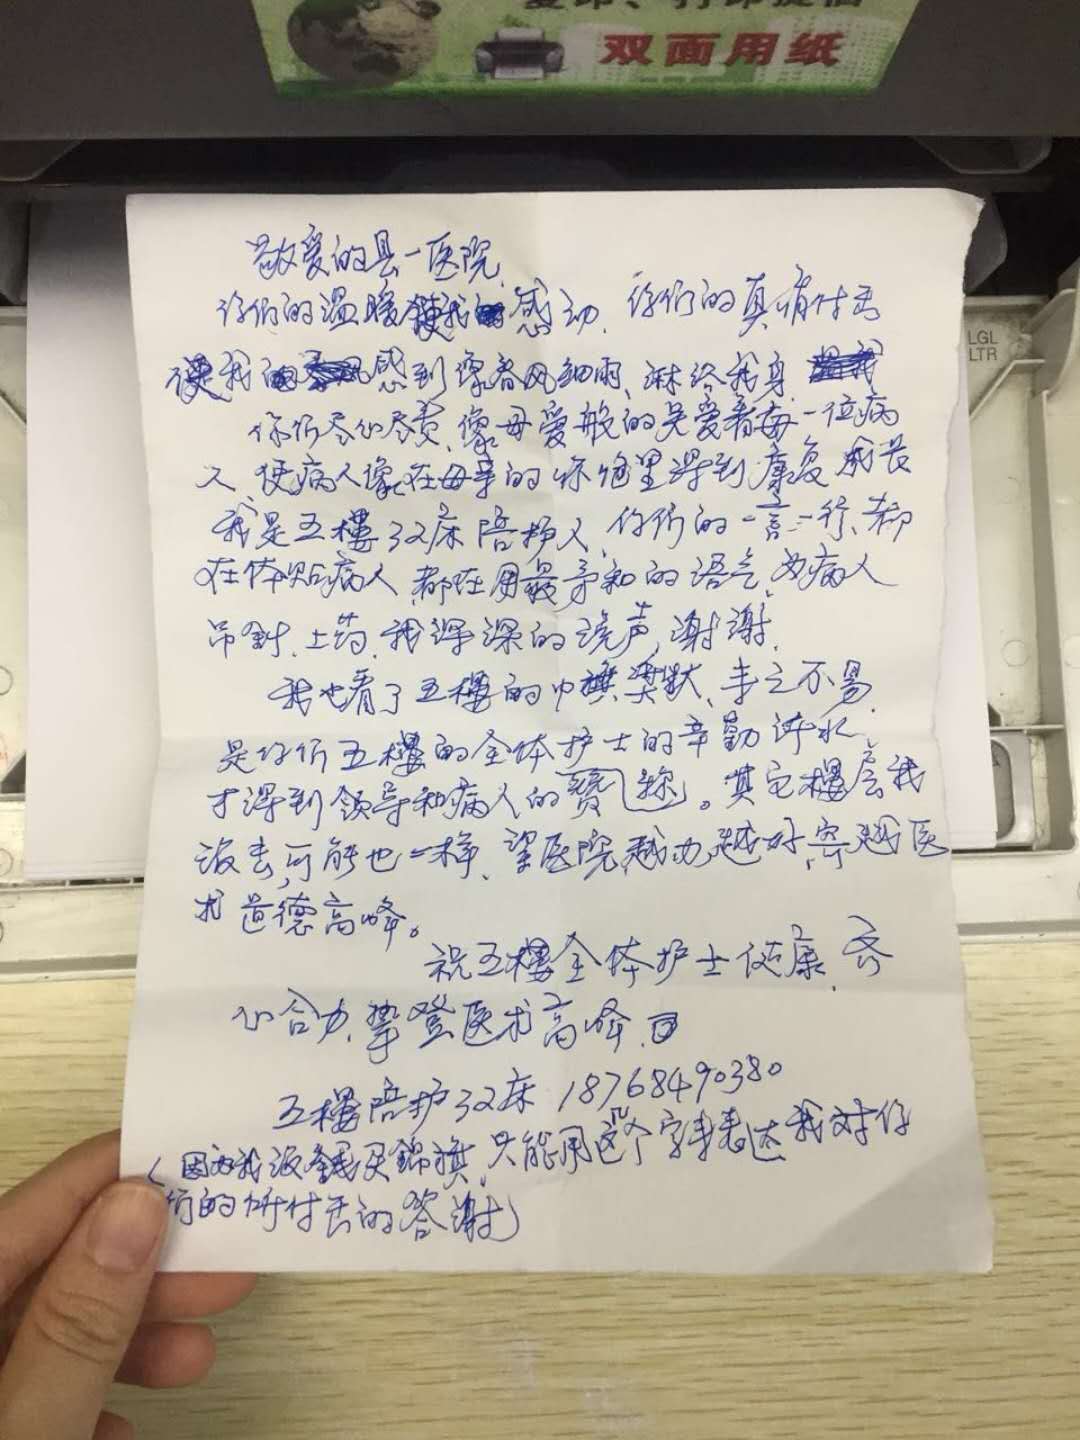 复印、打印提倡
双面用纸
LGL
LTR
敬爱的县一医院
你们的温暖使我感动、你们的真情付出
使我感到像春风细雨、淋给我身
你们尽心尽责、像母爱般的关爱着每一位病
人、使病人像在母亲的怀抱里得到康复成长
我是五楼32床陪护人、你们的一言一行、都
在体贴病人、都在用最柔和的语气、为病人
吊针、上药、我深深的说声、谢谢、
我也看了五楼的巾旗奖状、来之不易、
是你们五楼的全体护士的辛勤汗水、
才得到领导和病人的赞称。其它楼层我
没去、可能也一样、望医院越办越好、穿越医
术道德高峰。
祝五楼全体护士健康、齐
心合力、攀登医术高峰、
五楼陪护32床 18768490380
（因为我没钱买锦旗、只能用这个字来表达我对你
们的所付出的答谢）